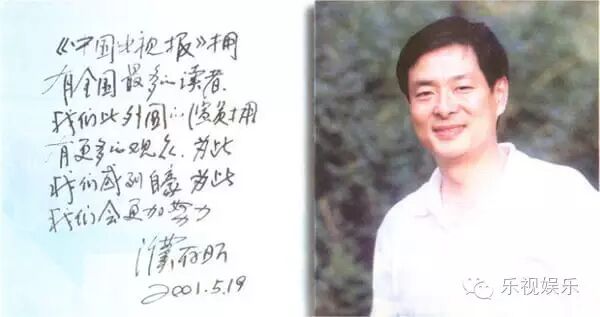 《中国电视报》拥
有全国最多的读者.
我们比外国的演员拥
有更多的观众.为此
我们感到自豪 为此
我们会更加努力
濮存昕
2001.5.19
乐视娱乐